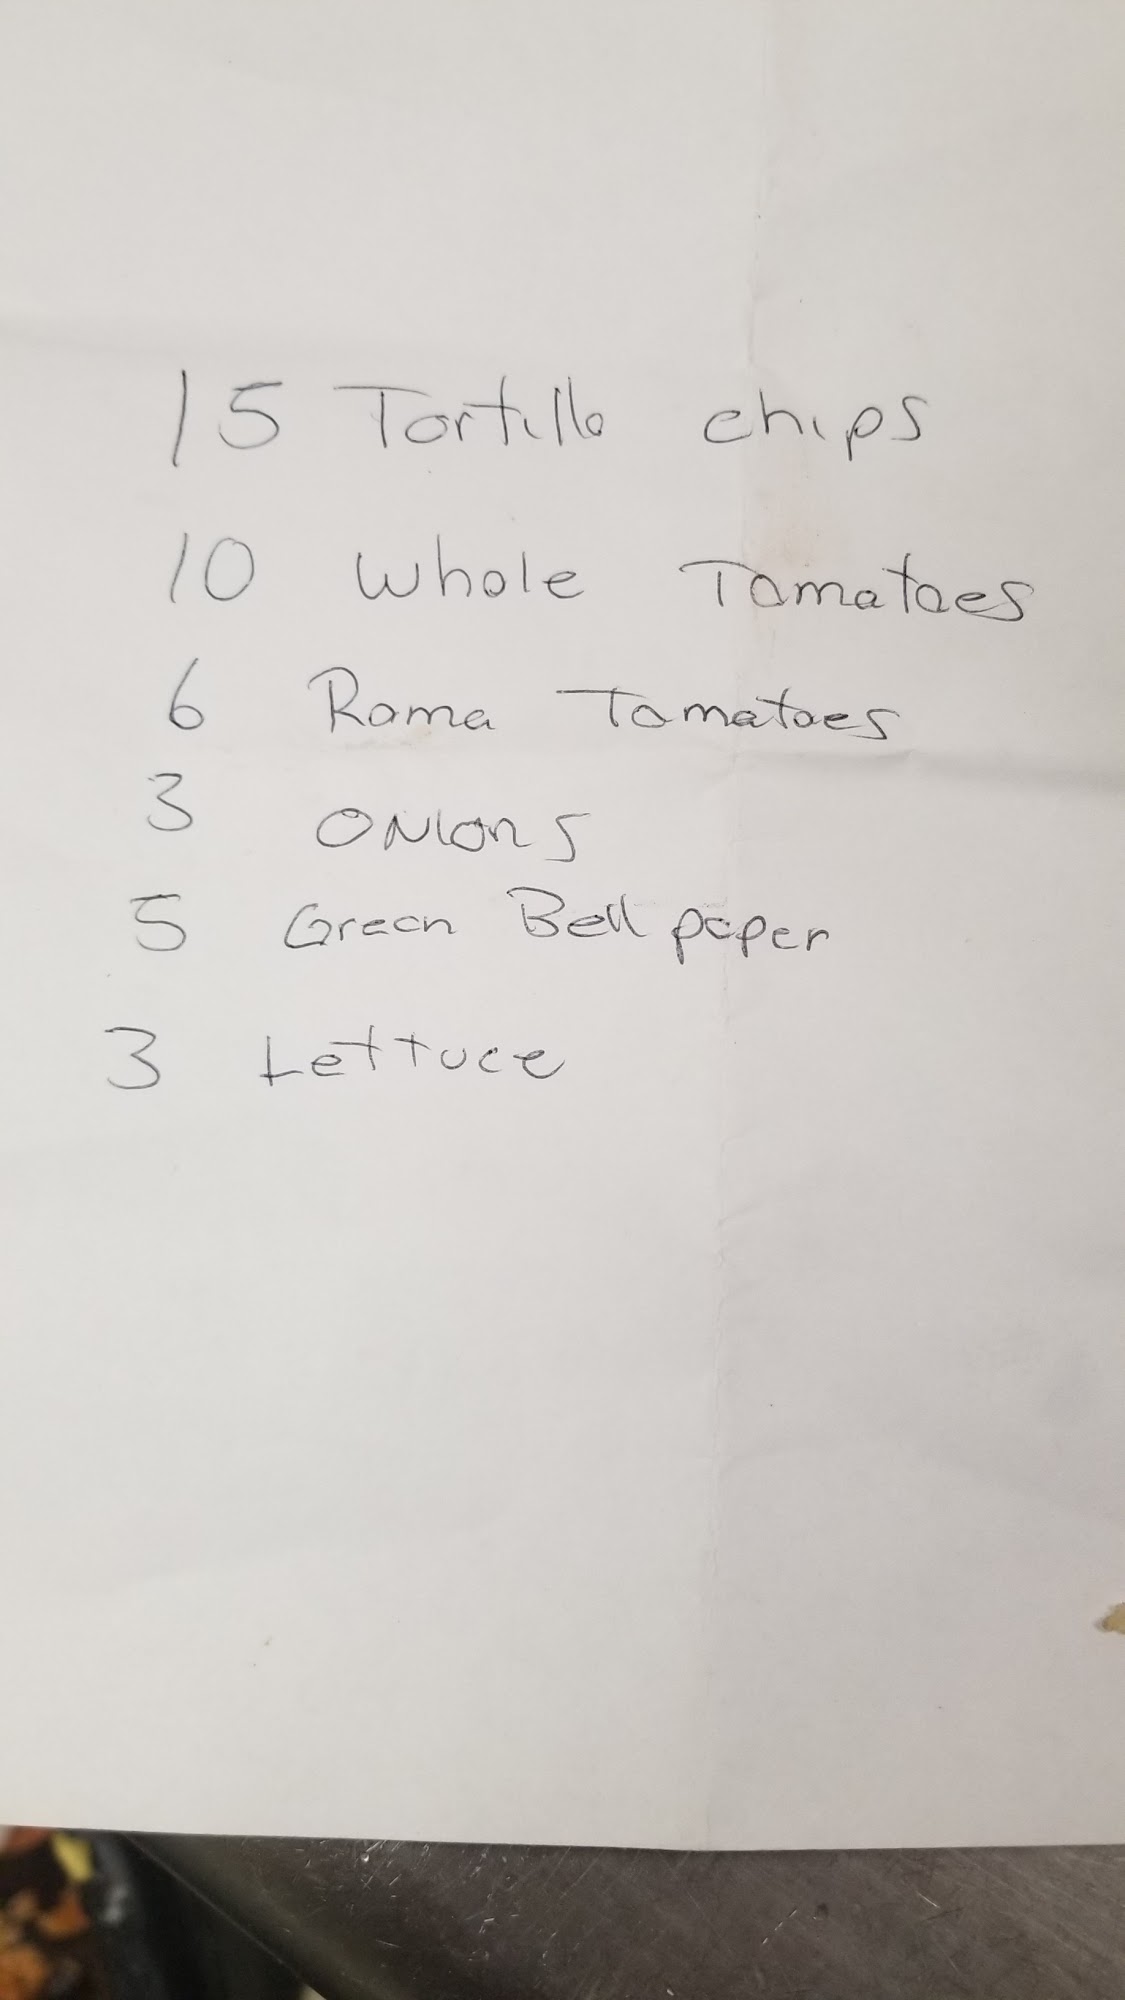 15 Tortilla chips
10 Whole Tomatoes
6 Roma Tomatoes
3 Onions
5 Green Bell peper
3 Lettuce